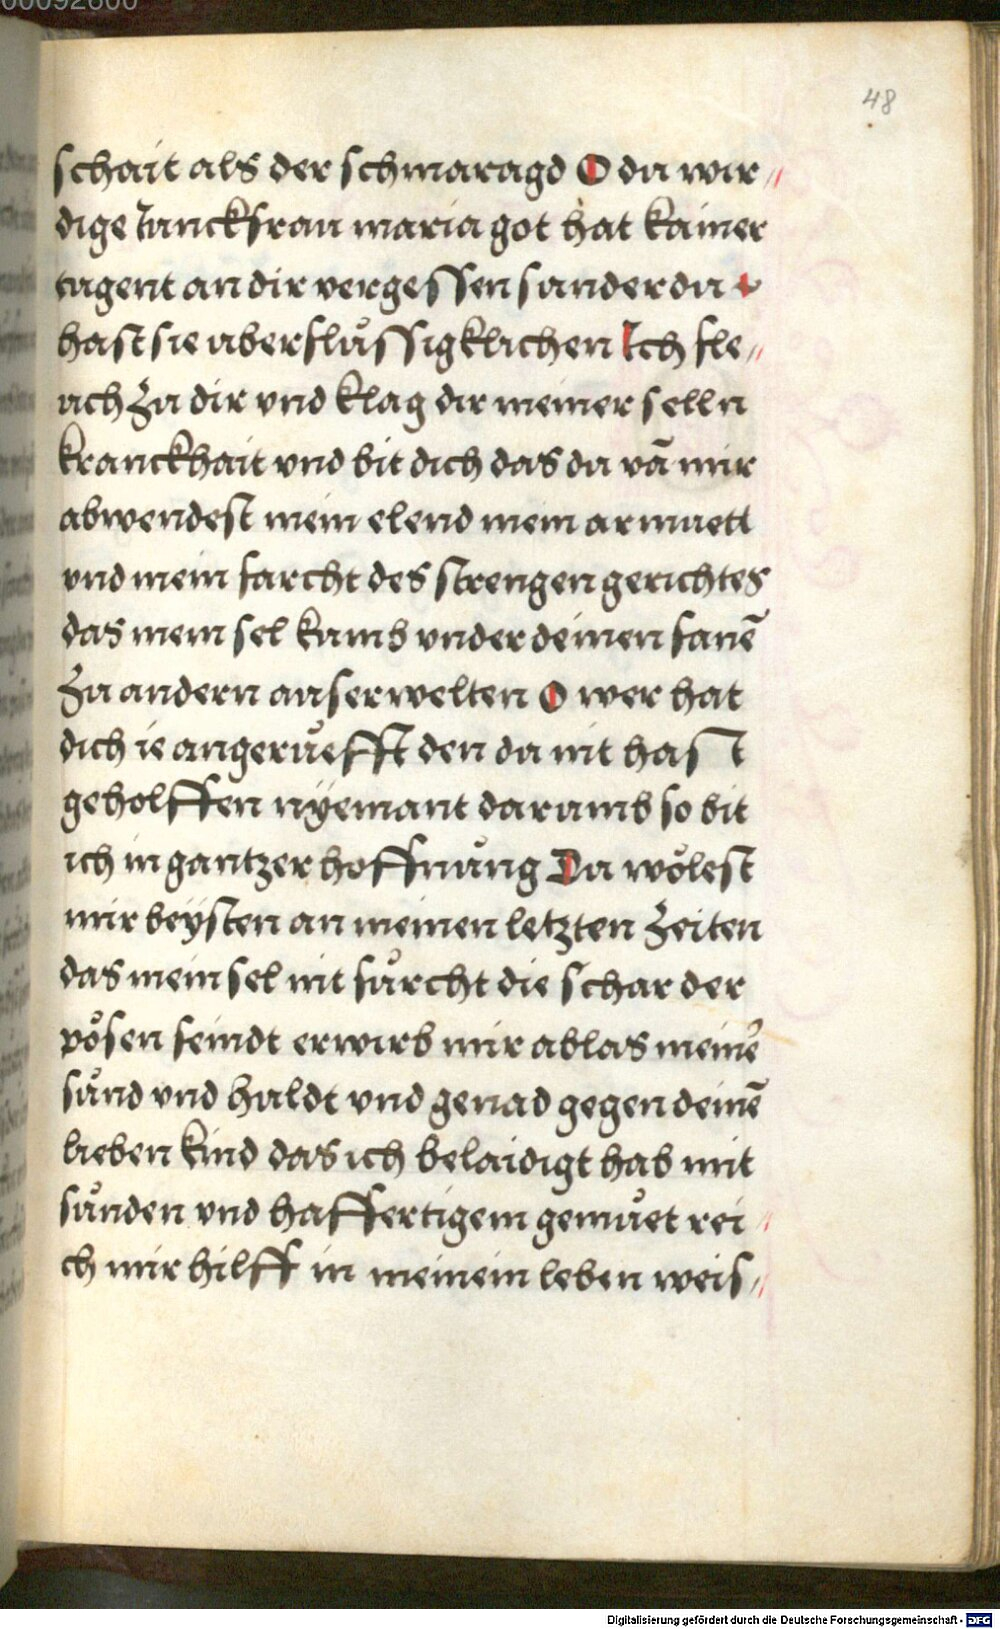 00092600
48
schait als der schmaragd O du wir//
dige Junckfrau maria got hat kainer
tugent an dir vergessen sunder du
hast sie uberflüssigklichen Ich fle//
uch zu dir vnd klag dir meiner selln
kranckhait vnd bit dich das du vā mir
abwendest mein elend mein armuett
vnd mein farcht des strengen gerichtes
das mein sel kumb vnder deinen fanē
zu andern auserwelten O wer hat
dich ie angerŭefft den du nit hast
geholffen nyemant darumb so bit
ich in gantzer hoffnŭng Du wölest
mir beÿsten an meinen letzten zeiten
das mein sel nit fürcht die schar der
pösen feindt erwirb mir ablas meine͛
sünd vnd huldt vnd genad gegen deinē
lieben kind das ich belaidigt hab mit
sünden vnd haffertigem gemŭet rei/
ch mir hilff in meinem leben weis//
Digitalisierung gefördert durch die Deutsche Forschungsgemeinschaft - DFG